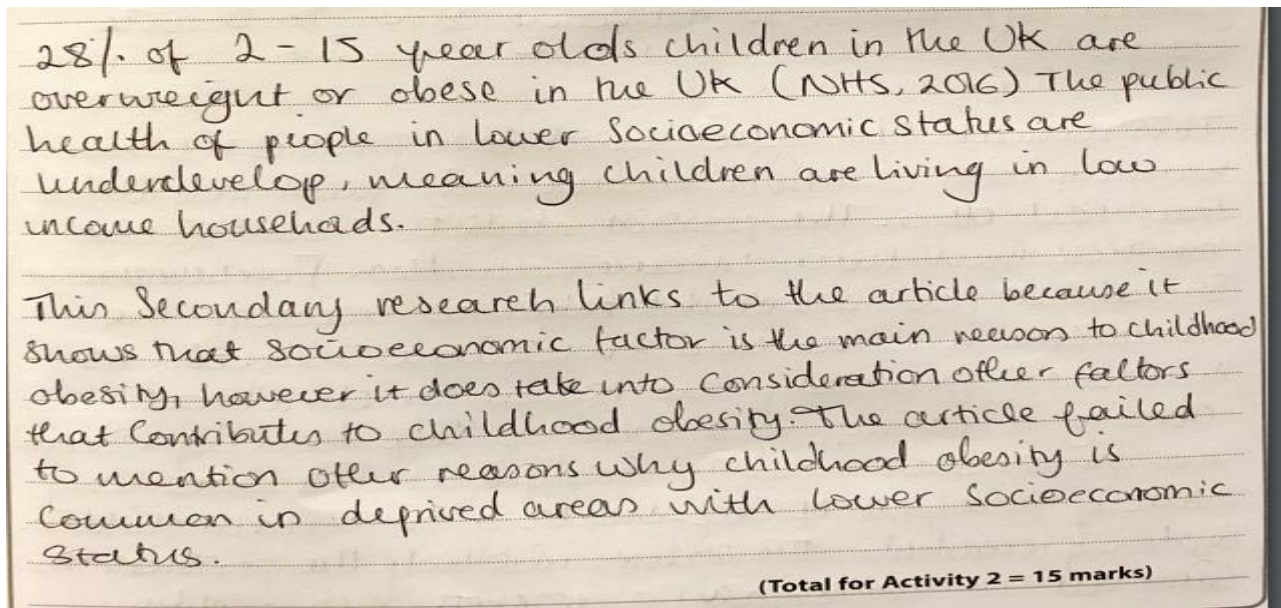 28% of 2 - 15 year olds children in the UK are
overweight or obese in the UK (NHS, 2016) The public
health of people in lower Socioeconomic status are
underdevelop, meaning children are living in low
income househads.
This Secondary research links to the article because it
shows that socioeconomic factor is the main reason to childhood
obesity, however it does take into consideration other factors
that contributes to childhood obesity. The article failed
to mention other reasons why childhood obesity is
Common in deprived areas with lower Socioeconomic
Status.
(Total for Activity 2 = 15 marks)